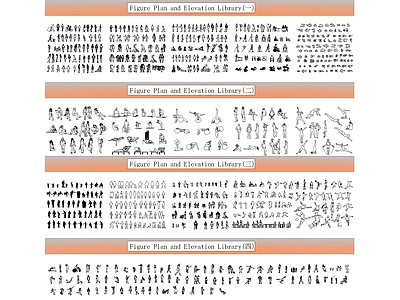 Figure Plan and Elevation Library(一)
Figure Plan and Elevation Library(二)
Figure Plan and Elevation Library(三)
Figure Plan and Elevation Library(四)